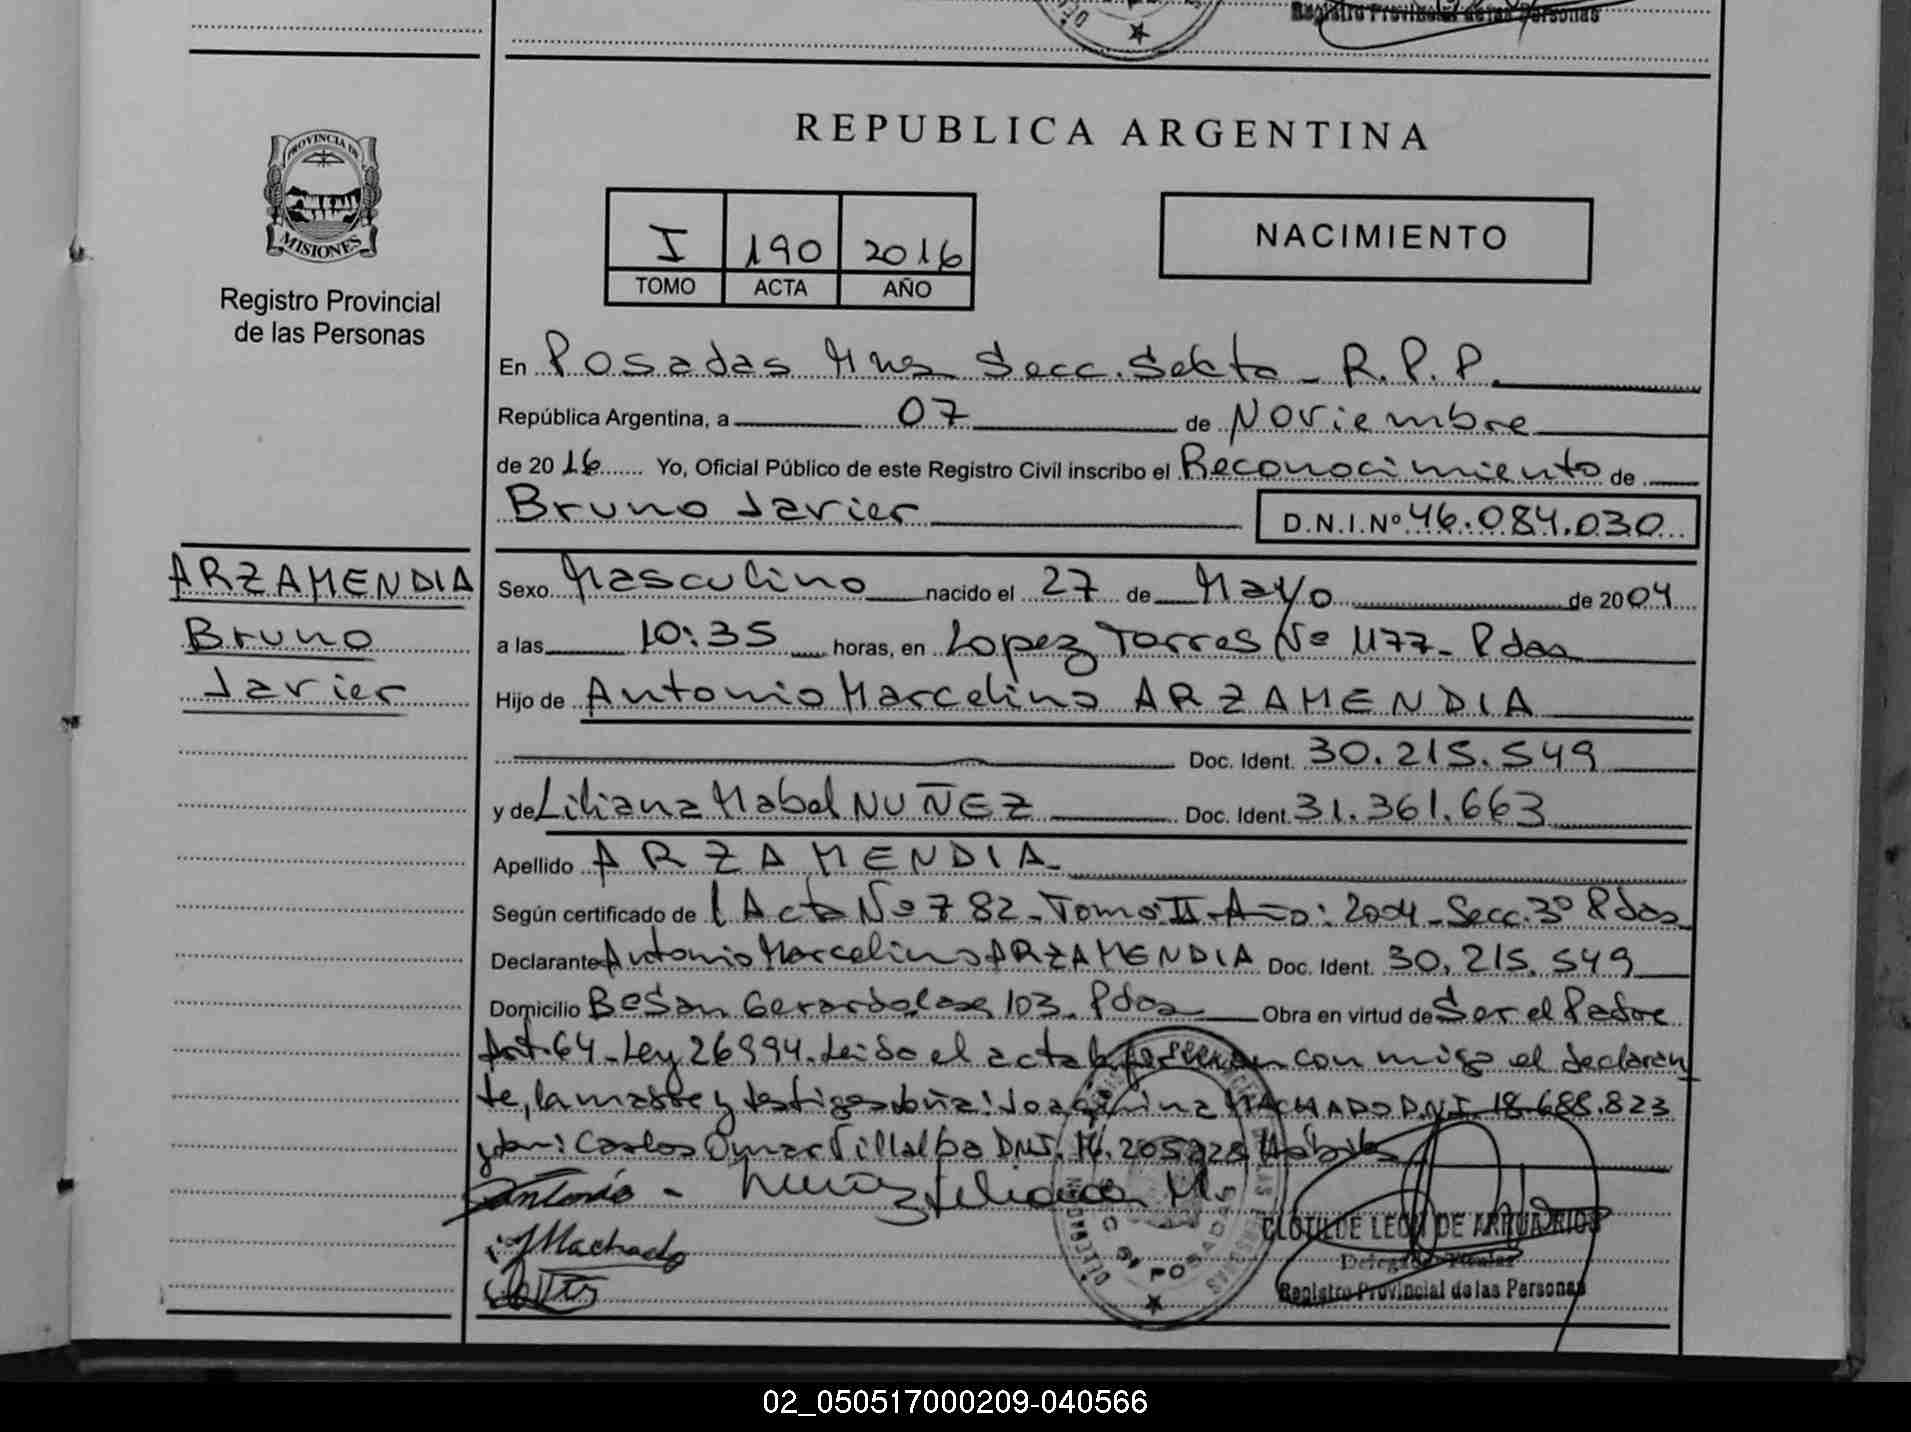 Registro Provincial de las Personas
REPUBLICA ARGENTINA
PROVINCIA DE
MISIONES
Registro Provincial
de las Personas
I 190 2016
TOMO ACTA AÑO
NACIMIENTO
En Posadas Mnes Secc. Sexta - R.P.P.
República Argentina, a 07 de Noviembre
de 2016 Yo, Oficial Público de este Registro Civil inscribo el Reconocimiento de
Bruno Javier D.N.I. Nº 46.084.030
ARZAMENDIA
Bruno
Javier
Sexo Masculino nacido el 27 de Mayo de 2004
a las 10:35 horas, en Lopez Torres Nº 1177 - Pdas
Hijo de Antonio Marcelino ARZAMENDIA
Doc. Ident. 30.215.549
y de Liliana Mabel NUÑEZ Doc. Ident. 31.361.663
Apellido ARZAMENDIA -
Según certificado de Acta Nº 782 - Tomo: II - Año: 2004 - Secc. 3º Pdas
Declarante Antonio Marcelino ARZAMENDIA Doc. Ident. 30.215.549
Domicilio Bº San Gerardo 103 - Pdas Obra en virtud de Ser el Padre
Art. 64 - Ley 26994. Leido el acta la firman conmigo el declaran
te, la madre y testigos doña: Joaquina MACHADO D.N.I. 18.688.823
y don: Carlos Omar Villalba DNI. 16.205928 Hábiles
Antonio - Nuñez Liliana M.
J Machado
CLOTILDE LEON DE
Delegada Titular
Registro Provincial de las Personas
POSADAS
02_050517000209-040566